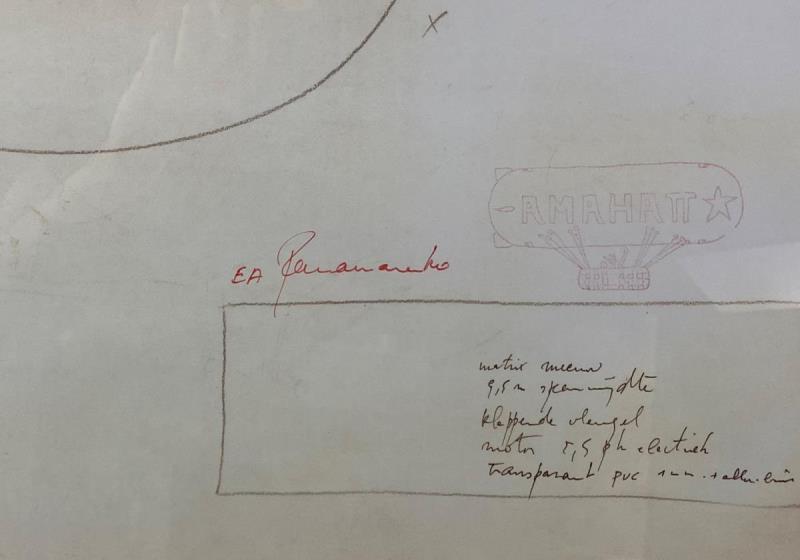 X
AMAHATT ☆
EA Panamarenko
matrix meeuw
9,5 m spanwijdte
kleppende vleugel
motor 5,5 pk electriek
transparant pvc